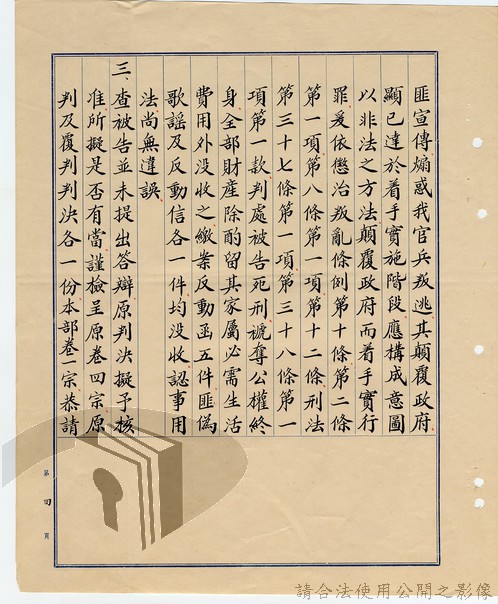 匪宣傳煽惑我官兵叛逃其顛覆政府
顯已達於着手實施階段應構成意圖
以非法之方法顛覆政府而着手實行
罪爰依懲治叛亂條例第十條第二條
第一項第八條第一項第十二條刑法
第三十七條第一項第三十八條第一
項第一款判處被告死刑褫奪公權終
身全部財產除酌留其家屬必需生活
費用外沒收之繳案反動函五件匪偽
歌謠及反動信各一件均沒收認事用
法尚無違誤
三、查被告並未提出答辯原判決擬予核
准所擬是否有當謹檢呈原卷四宗原
判及覆判判決各一份本部卷一宗恭請
第四頁
請合法使用公開之影像